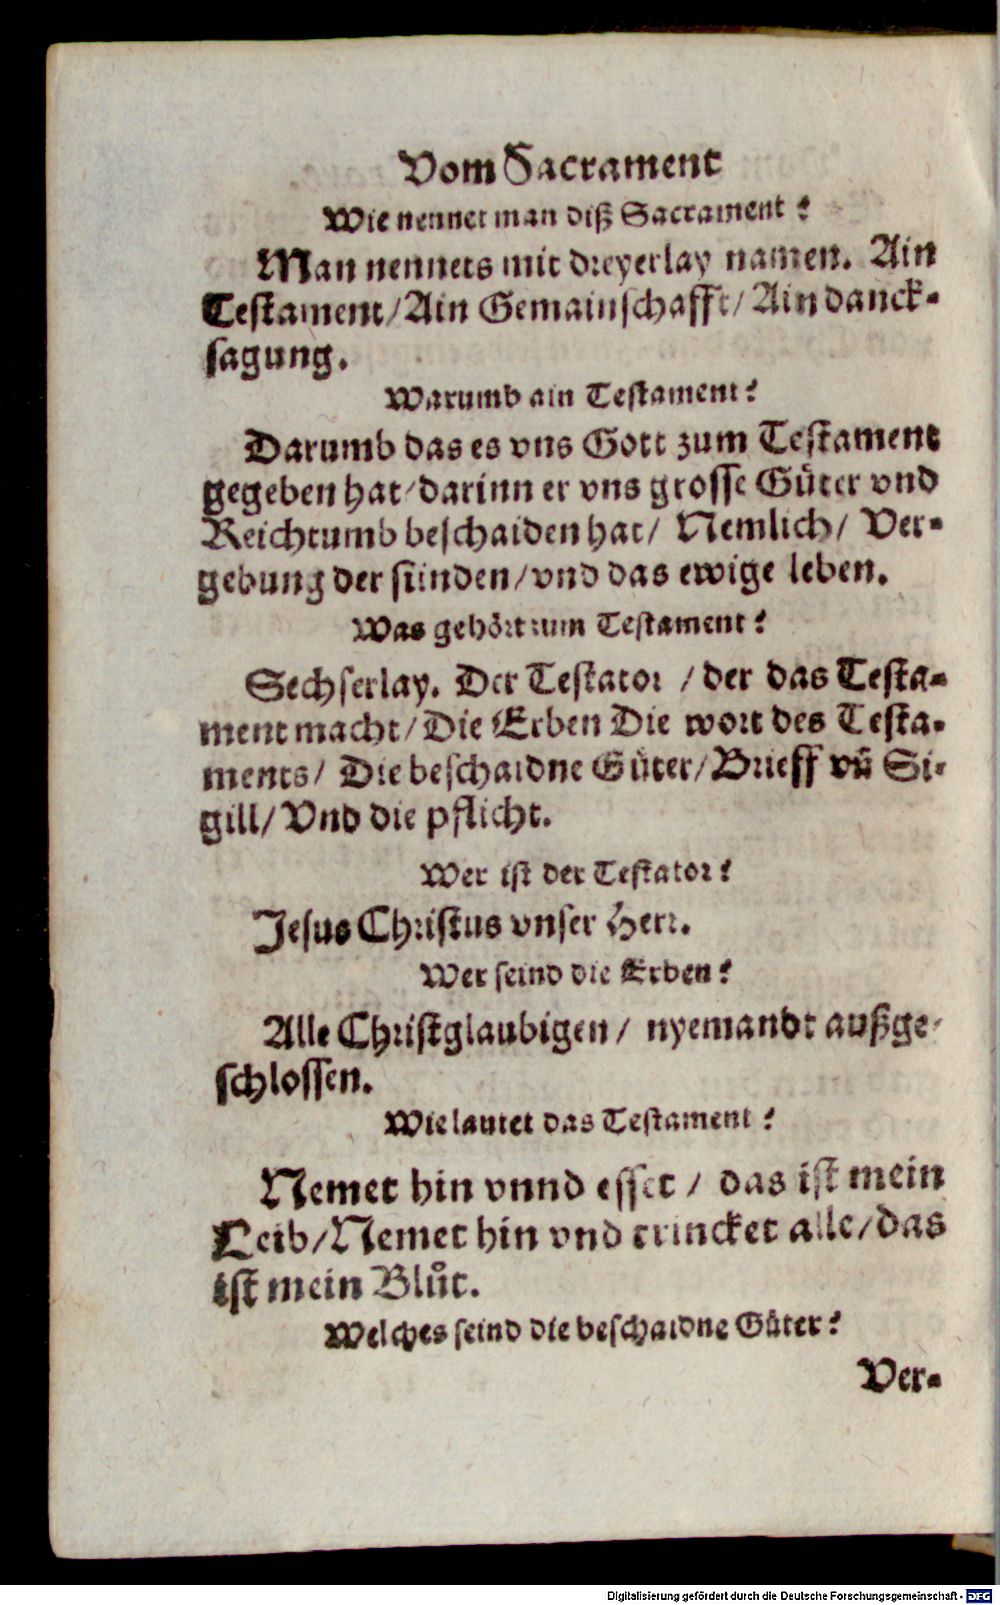 Vom Sacrament
Wie nennet man diß Sacrament?
Man nennets mit dreyerlay namen. Ain
Testament/Ain Gemainschafft/Ain danck-
sagung.
Warumb ain Testament?
Darumb das es vns Gott zum Testament
gegeben hat/darinn er vns grosse Gůter vnd
Reichtumb beschaiden hat/ Nemlich/ Ver-
gebung der sünden/vnd das ewige leben.
Was gehört zum Testament?
Sechserlay. Der Testator /der das Testa-
ment macht/Die Erben Die wort des Testa-
ments/ Die beschaidne Gůter/Brieff vñ Si-
gill/Vnd die pflicht.
Wer ist der Testator?
Jesus Christus vnser Herr.
Wer seind die Erben?
Alle Christglaubigen/ nyemandt außge-
schlossen.
Wie lautet das Testament?
Nemet hin vnnd esset / das ist mein
Leib/Nemet hin vnd trincket alle/das
ist mein Blůt.
Welches seind die beschaidne Gůter?
Ver-
Digitalisierung gefördert durch die Deutsche Forschungsgemeinschaft - DFG